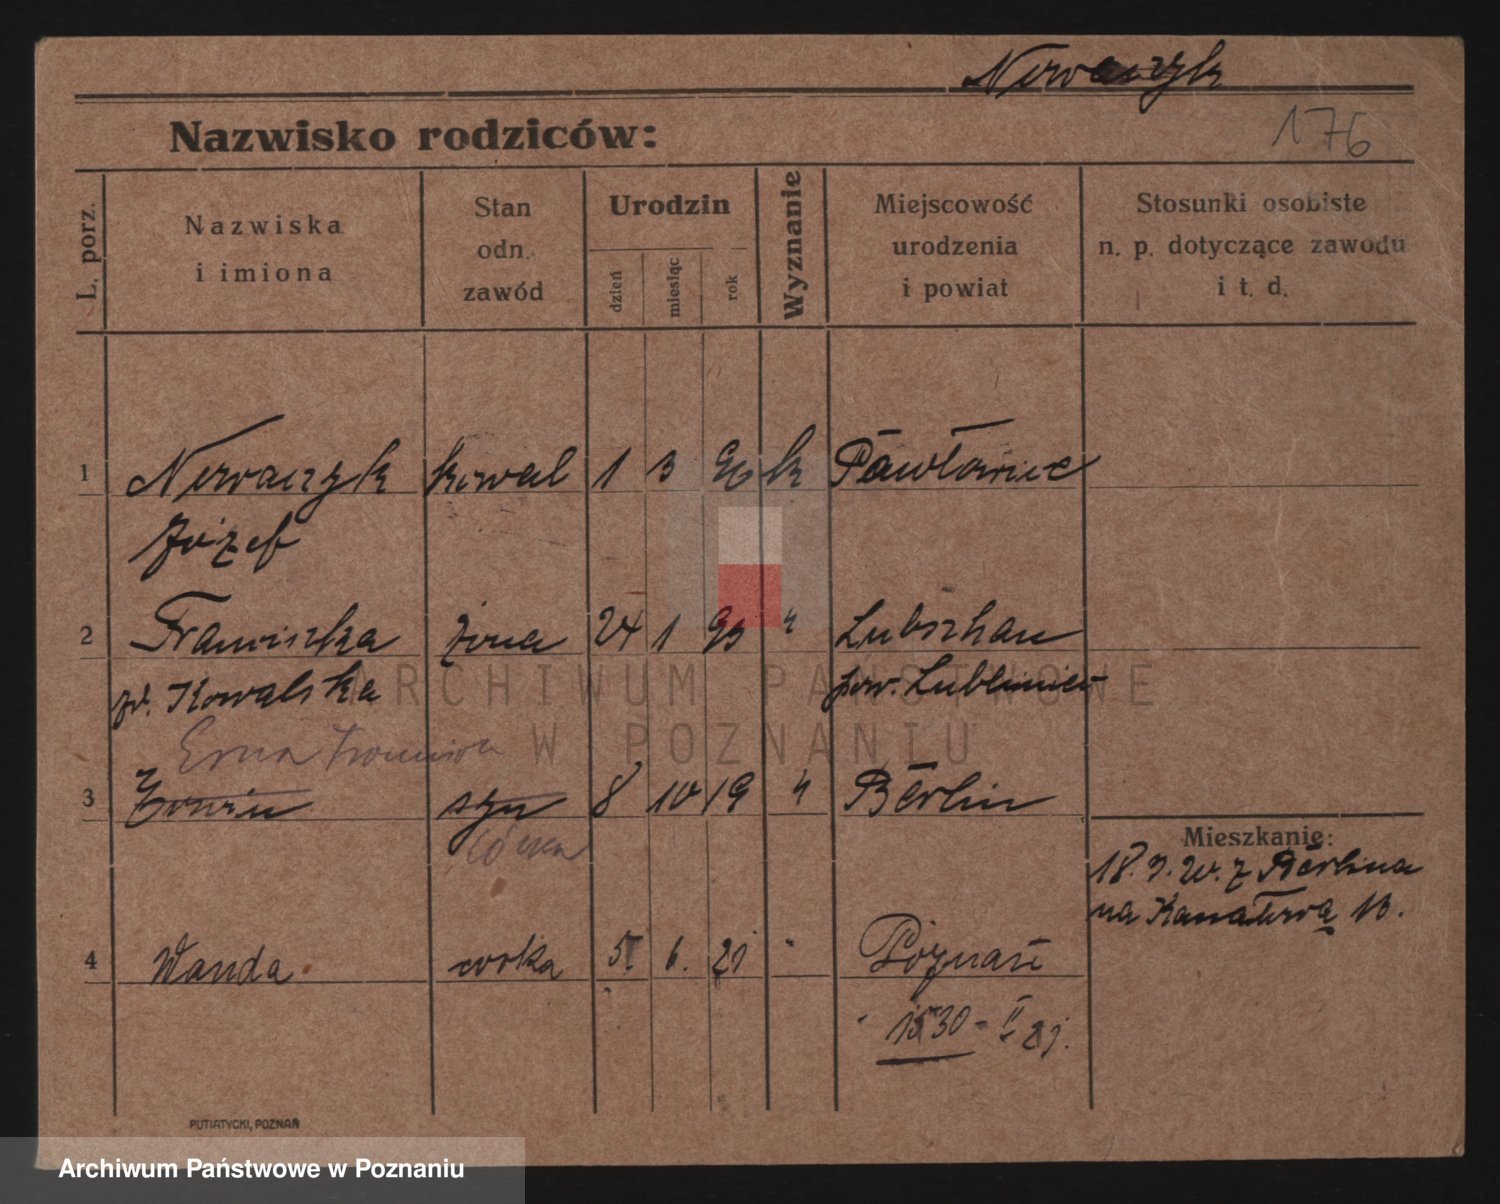 Nowaczyk
Nazwisko rodziców:
176
L. porz.
Nazwiska
i imiona
Stan
odn.
zawód
Urodzin
dzień
miesiąc
rok
Wyznanie
Miejscowość
urodzenia
i powiat
Stosunki osobiste
n. p. dotyczące zawodu
i t. d.
1 Nowaczyk kowal 1 3 96 k Pawłowice
Józef
2 Franciszka żona 24 1 93 " Lubschau
pow. Lubliniec
Kowalska
Erna
3 Erwin syn 8 10 19 " Berlin
córka
Mieszkanie:
18. 9. 20. z Berlina
na Kanałową 13.
4 Wanda córka 5. 6. 21 " Poznań
1530 - II 21.
PUTIATYCKI, POZNAŃ
ARCHIWUM PAŃSTWOWE
W POZNANIU
Archiwum Państwowe w Poznaniu